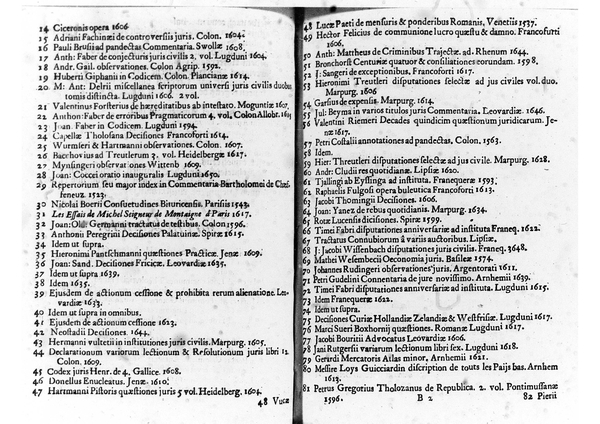 14 Ciceronis opera 1606
15 Adriani Fachinæi de controversiis juris. Colon. 1604.
16 Pauli Brusii ad pandectas Commentaria. Swollæ 1608.
17 Anth: Faber de conjecturis juris civilis 2. vol. Lugduni 1604.
18 Andr. Gail. observationes. Colon Agrip. 1592.
19 Huberti Giphanis in Codicem. Colon. Planciana 1614.
20 M: Ant: Delrii miscellanea scriptorum universi juris civilis duobus
tomis distincta. Lugduni 1606. 2 vol.
21 Valentinus Forsterius de hæreditatibus ab intestato. Moguntiæ 1607.
22 Anthon: Faber de erroribus Pragmaticorum 4. vol. Colon Allobr. 1615
23 Joan. Faber in Codicem. Lugduni 1594.
24 Capellæ Tholosanæ Decisiones Francoforti 1614.
25 Wurmseri & Hartmanni observationes. Colon. 1607.
26 Bacchovius ad Treutlerum 3. vol. Heidelbergæ 1617.
27 Mynsingeri observationes Wittenb 1609.
28 Joan: Coccei oratio inauguralis Lugduni 1650.
29 Repertorium seu major index in Commentaria Bartholomei de Chaseneuz
1523.
30 Nicolai Boerii Consuetudines Bituricensis. Parisiis 1543.
31 Les Essais de Michel Seigneur de Montaigne à Paris 1617.
32 Joan: Old: Germani tractatus de testibus. Colon 1596.
33 Anthonii Peregrini Decisiones Palatuinæ. Spiræ 1615.
34 Idem ut supra.
35 Hieronimi Pantschmanni quæstiones Practicæ. Jenæ 1609.
36 Joan: Sand. Decisiones Fricicæ. Leovardiæ 1635.
37 Idem ut supra 1639.
38 Idem 1635.
39 Ejusdem de actionum cessione & prohibita rerum alienatione. Leovardiæ
1633.
40 Idem ut supra in omnibus.
41 Ejusdem de actionum cessione 1623.
42 Neostadii Decisiones. 1644.
43 Hermanni vulteii in institutiones juris civilis. Marpurg. 1605.
44 Declarationum variorum lectionum & Resolutionum juris libri 12.
Colon. 1609.
45 Codex juris Henr. de 4. Gallice. 1608.
46 Donellus Enucleatus. Jenæ. 1610.
47 Hartmanni Pistoris quæstiones juris 5 vol. Heidelberg. 1604.
48 Lucæ Paeti de mensuris & ponderibus Romanis, Venetiis 1537.
49 Hector Felicius de communione lucro quæstu & damno. Francofurti
1606.
50 Anth: Mattheus de Criminibus Trajectæ. ad. Rhenum 1644.
51 Bronchorst Centuriæ quatuor & consiliationes eorundam. 1598.
52 J: Sangeri de exceptionibus, Francoforti 1617.
53 Hieronimi Treutleri disputationes selectæ ad jus civiles vol. duo.
Marpurg. 1606
54 Garsius de expensis. Marpurg. 1614.
55 Jul: Beyma in varios titulos juris Commentaria. Leovardiæ. 1646.
56 Valentini Riemeri Decades quindicim quæstionum juridicarum. Jenæ
1617.
57 Petri Costalii annotationes ad pandectas, Colon, 1563.
58 Idem.
59 Hier: Threutleri disputationes selectæ ad jus civile. Marpurg. 1628.
60 Andr: Cludii res quotidianæ. Lipsiæ 1620.
61 Tjallingi ab Eyssinga ad instituta. Franequeræ 1593.
62 Raphaelis Fulgosi opera buleutica Francoforti 1613.
63 Jacobi Thomingii Decisiones. 1606.
64 Joan: Yanez de rebus quotidianis. Marpurg. 1634.
65 Rotæ Lucensis dicisiones. Spiræ 1599.
66 Timei Fabri disputationes anniversariæ ad instituta Franeq. 1642.
67 Tractatus Connubiorum à variis authoribus. Lipsiæ.
68 J: Jacobi Wissenbach disputationes juris civilis. Franeq. 3648.
69 Mathei Wesembecii Oeconomia juris. Basileæ 1574.
70 Johannes Rudingeri observationes juris, Argentorati 1611.
71 Petri Gudelini Conmentaria de jure novissimo. Arnhemii. 1639.
72 Timei Fabri disputationes anniversariæ ad instituta. Lugduni 1615.
73 Idem Franequeræ 1622.
74 Idem ut supra.
75 Decisiones Curiæ Hollandiæ Zelandiæ & Westfrisiæ. Lugduni 1617.
76 Marci Sueri Boxhornij quæstiones. Romanæ Lugduni 1617.
77 Jacobi Bouritii Advocatus Leovardiæ 1606.
78 Jani Rutgersii variarum lectionum libri sex. Lugduni 1618.
79 Gerardi Mercatoris Atlas minor, Arnhemii 1621.
80 Messire Loys Guicciardin discription de touts les Paijs bas. Arnhem
1613.
81 Petrus Gregorius Tholozanus de Republica. 2. vol. Pontimussanæ
1596. B 2 82 Pierii
48 Vucæ